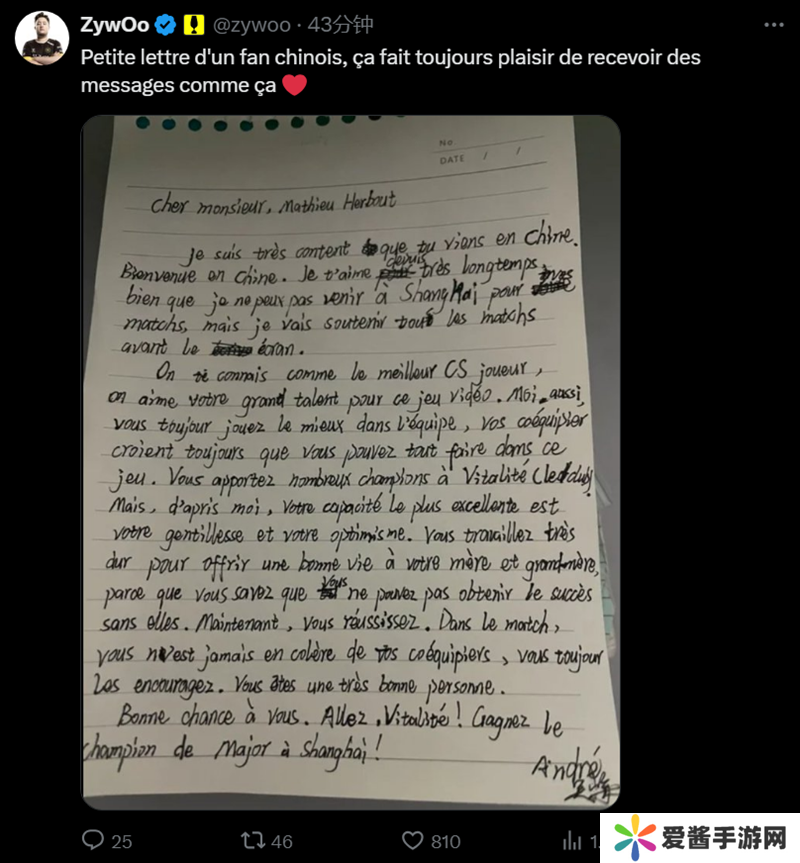 ZywOo @zywoo · 43分钟
Petite lettre d'un fan chinois, ça fait toujours plaisir de recevoir des
messages comme ça ❤️
No
DATE / /
Cher monsieur, Mathieu Herbaut
Je suis très content que tu viens en Chine.
Bienvenue en Chine. Je t'aime depuis très longtemps,
bien que je ne peux pas venir à ShangHai pour
matchs, mais je vais soutenir tous les matchs
avant le écran.
On te connais comme le meilleur CS joueur,
on aime votre grand talent pour ce jeu vidéo. Moi aussi,
vous toujour jouez le mieux dans l'équipe, vos coéquipier
croient toujours que vous pouvez tout faire dans ce
jeu. Vous apportez nombreux champions à Vitalité
Mais, d'apris moi, votre capacité le plus excellente est
votre gentillesse et votre optimisme. Vous travaillez très
dur pour offrir une bonne vie à votre mère et grand-mère,
parce que vous savez que vous ne pouvez pas obtenir le succès
sans elles. Maintenant, vous réussissez. Dans le match,
vous n'est jamais en colère de vos coéquipiers, vous toujour
les encouragez. Vous êtes une très bonne personne.
Bonne chance à vous. Allez, Vitalité! Gagnez le
champion de Major à Shanghai!
André
25 46 810 1
爱酱手游网